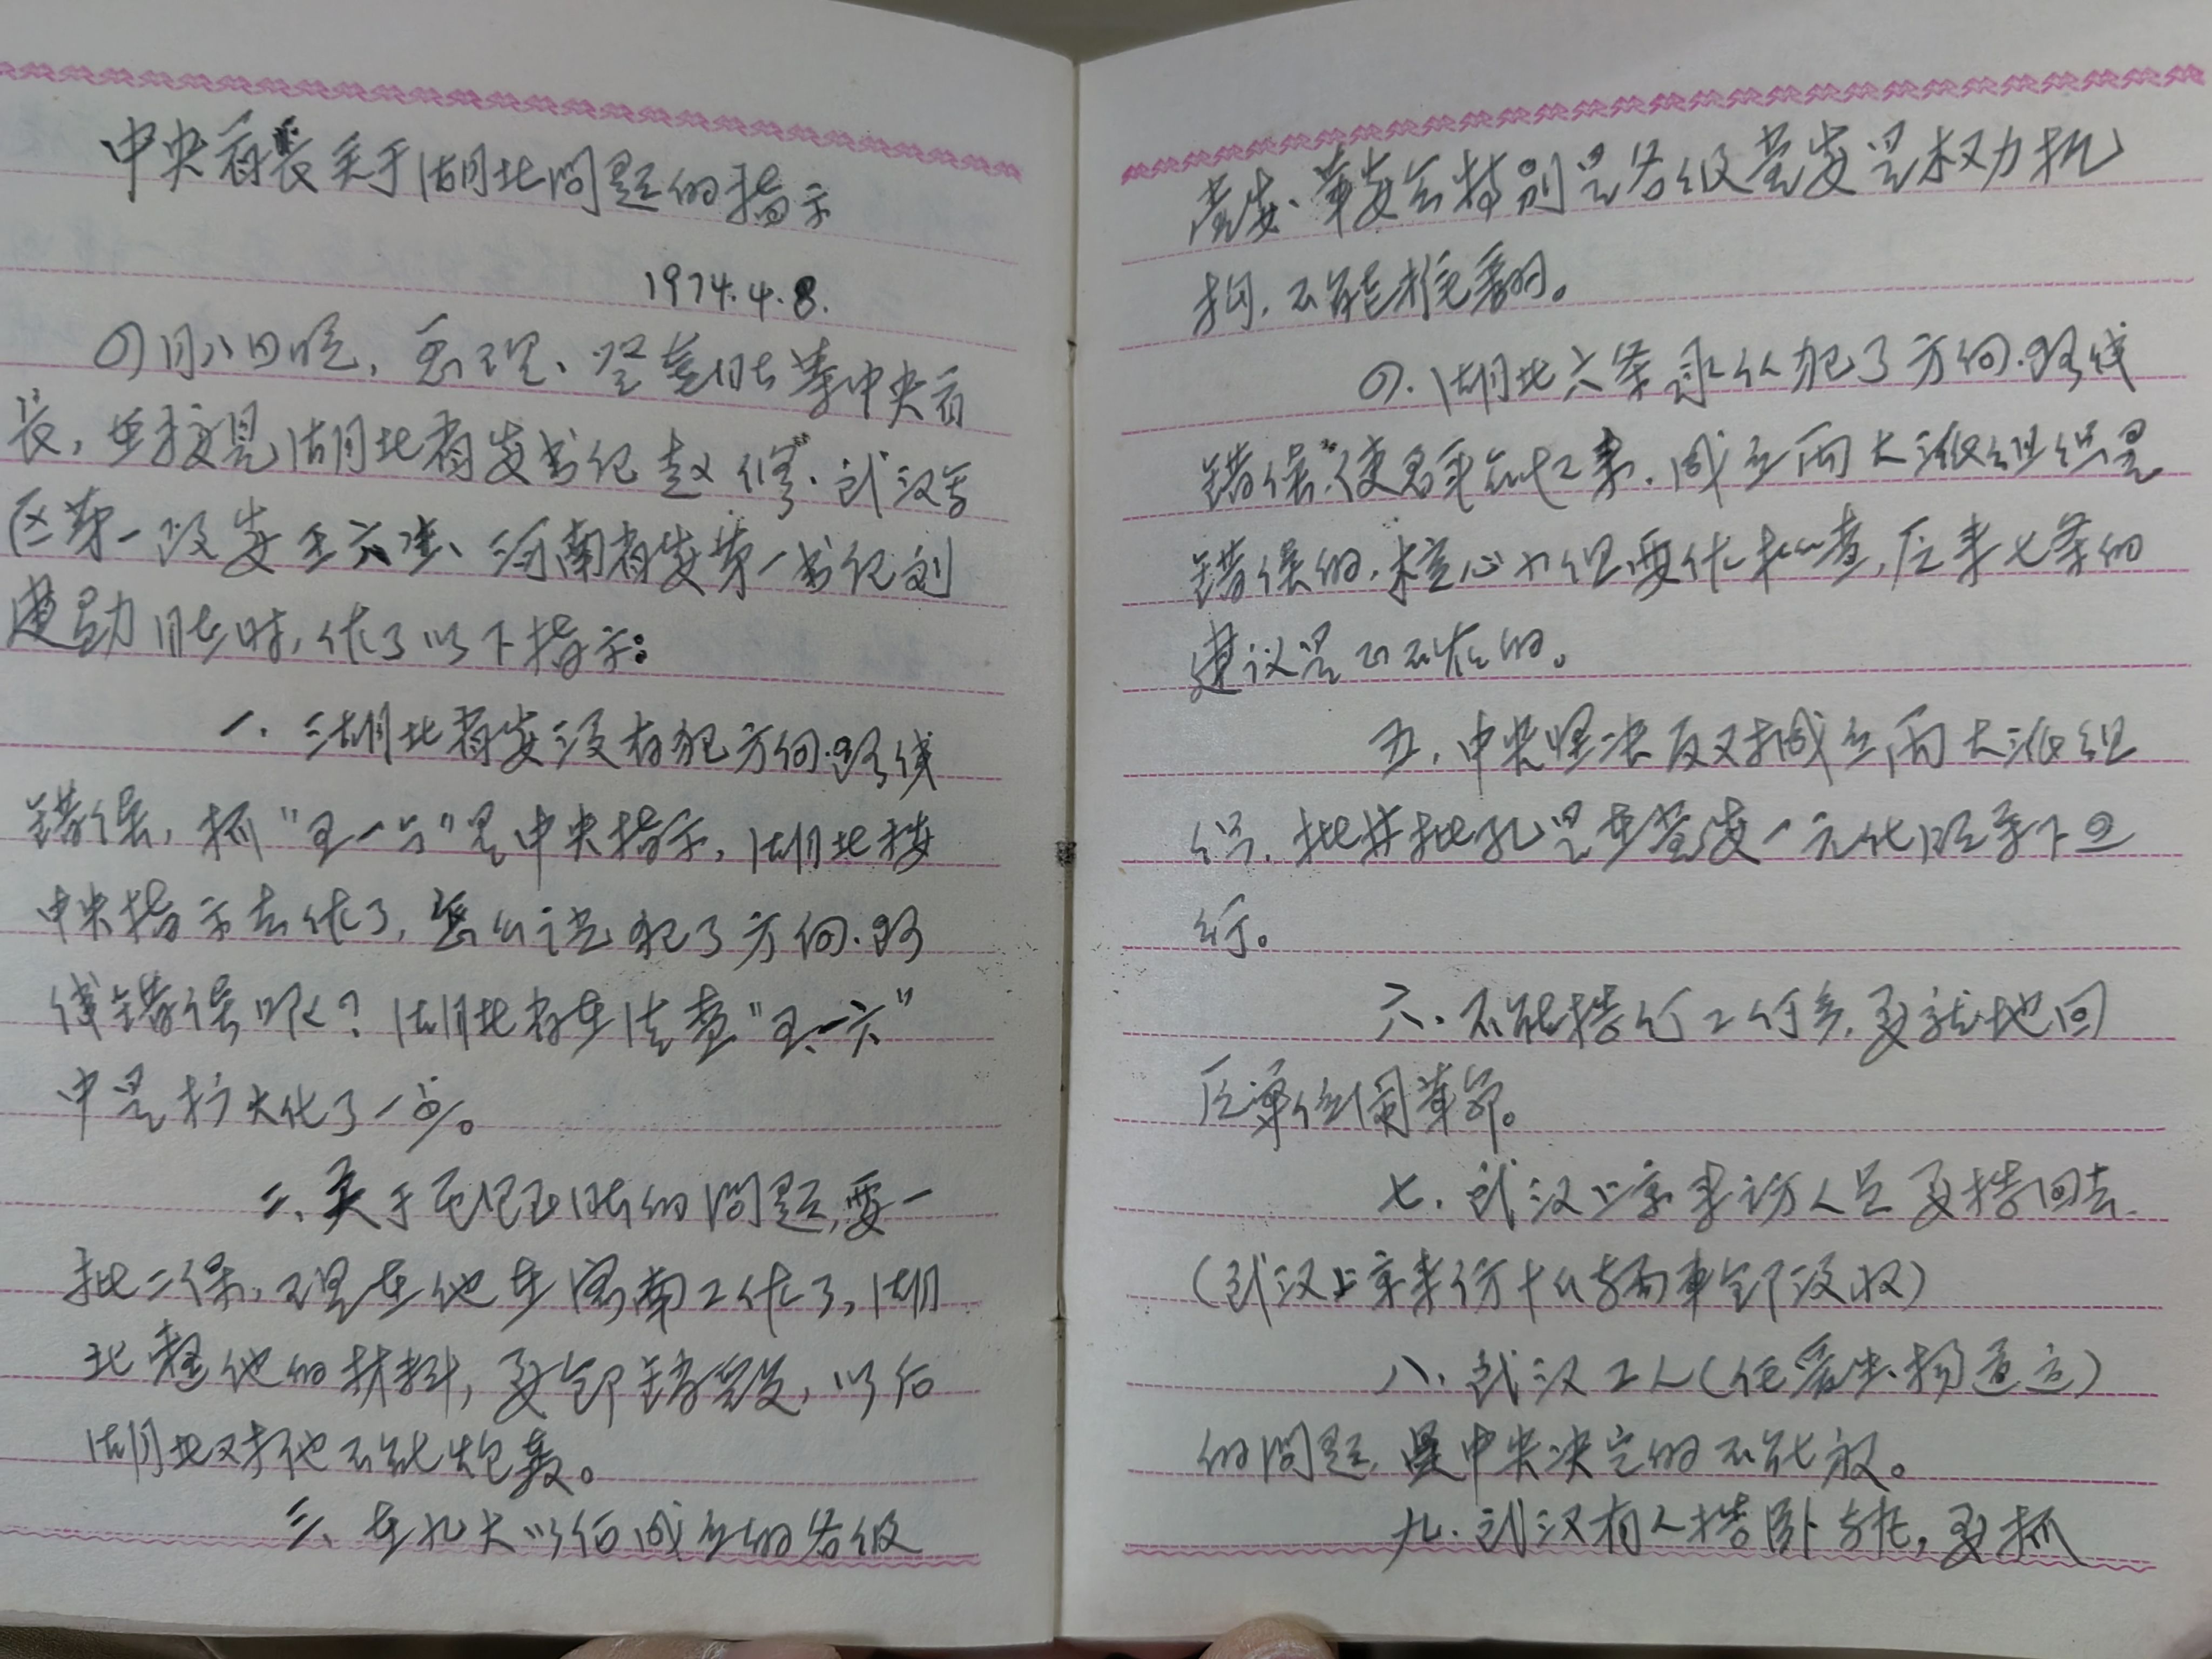 中央首长关于湖北问题的指示
1974.4.8.
四月八日晚，总理、登奎同志等中央首
长，在接见湖北省委书记赵修、武汉军
区第一政委王六生、河南省委第一书记刘
建勋同志时，作了以下指示：
一、湖北省委没有犯方向、路线
错误，抓“五一六”是中央指示，湖北按
中央指示去作了，怎么说犯了方向、路
线错误呢？湖北省在清查“五一六”
中是扩大化了一点。
二、关于同志的问题，要一
批二保，现在他在河南工作了，湖
北整他的材料，要全部销毁，以后
湖北对他不能炮轰。
三、在九大以后成立的各级
党委、革委会特别是各级党委是权力机
构，不能推翻。
四、湖北六条承认犯了方向、路线
错误，成立两大派组织是
错误的，核心小组要作检查，后来七条的
建议是不存在的。
五、中央坚决反对成立两大派组
织，批林批孔是在党委一元化领导下进
行。
六、不能搞行工行乡，要就地回
原单位闹革命。
七、武汉上京来访人员要撵回去，
（武汉上京来访十几辆车全部没收）
八、武汉工人（任爱生、杨道远）
的问题，是中央决定的不能放。
九、武汉有人搞卧轨，要抓